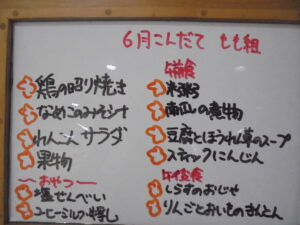 6月こんだて もも組
鶏の照り焼き
なめこのみそ汁
れんこんサラダ
果物
〜おやつ〜
塩せんべい
コーヒーミルク
午前食
米粥
南瓜の煮物
豆腐とほうれん草のスープ
スティックにんじん
午後食
しらすのおじや
りんごとおいものきんとん